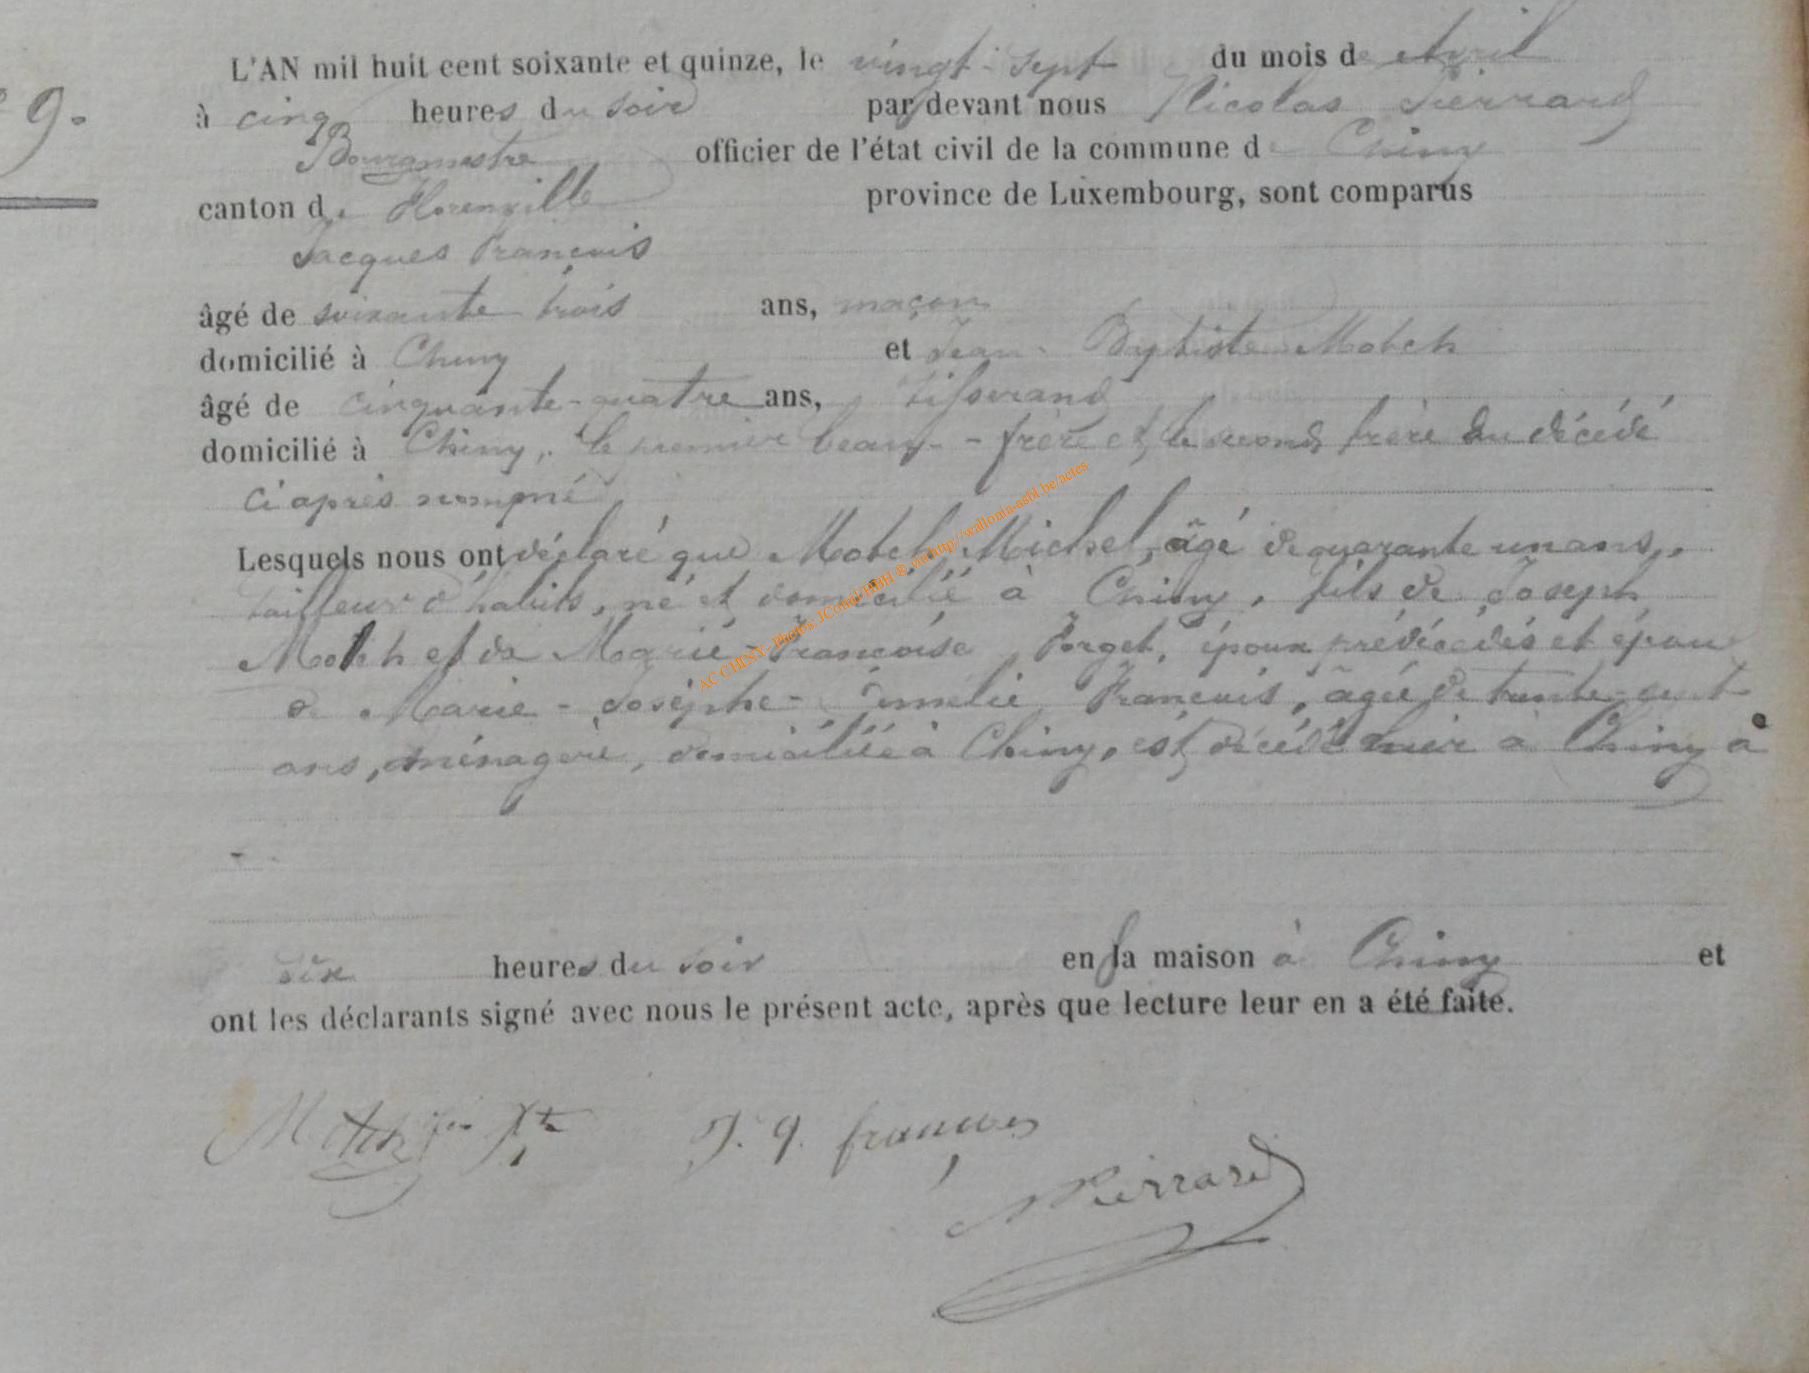 L'AN mil huit cent soixante et quinze, le vingt-sept du mois de avril
9.
à cinq heures du soir par devant nous Nicolas Pierrard
Bourgmestre officier de l'état civil de la commune de Chiny
canton de Florenville province de Luxembourg, sont comparus
Jacques François
âgé de soixante trois ans, maçon
domicilié à Chiny et Jean-Baptiste Motch
âgé de cinquante-quatre ans, tisserand
domicilié à Chiny, le premier beau-frère et le second frère du décédé
ci après nommé
Lesquels nous ont déclaré que Motch Michel, âgé de quarante un ans,
tailleur d'habits, né et domicilié à Chiny, fils de Joseph
Motch et de Marie-Françoise Forget, époux prédécédés et époux
de Marie-Josèphe- François, âgée de trente-
ans, ménagère, domiciliée à Chiny, est décédé hier à Chiny à
six heures du soir en sa maison à Chiny et
ont les déclarants signé avec nous le présent acte, après que lecture leur en a été faite.
Motch J. J. françois
N Pierrard
AC CHINY- Photos, JConul HBH ® via http://wallonia-asbl.be/actes